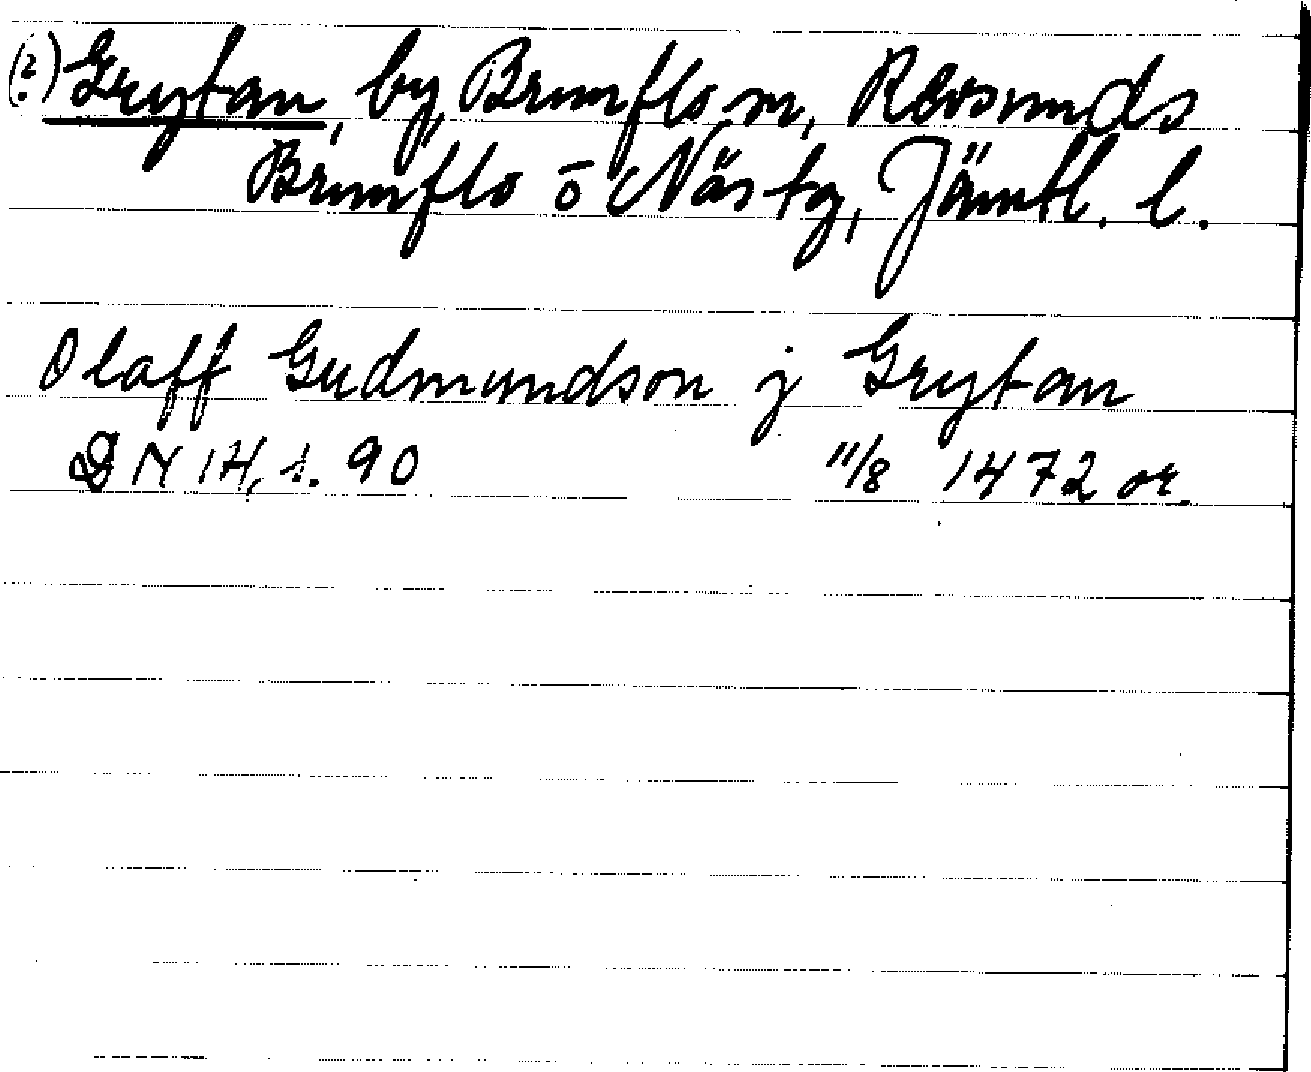 (?) Grytan, by, Brunflo sn, Revsunds
Brunflo o Näs tg, Jämtl. l.
Olaff Gudmundson j Grytan
DN 14, s. 90 11/8 1472 or.